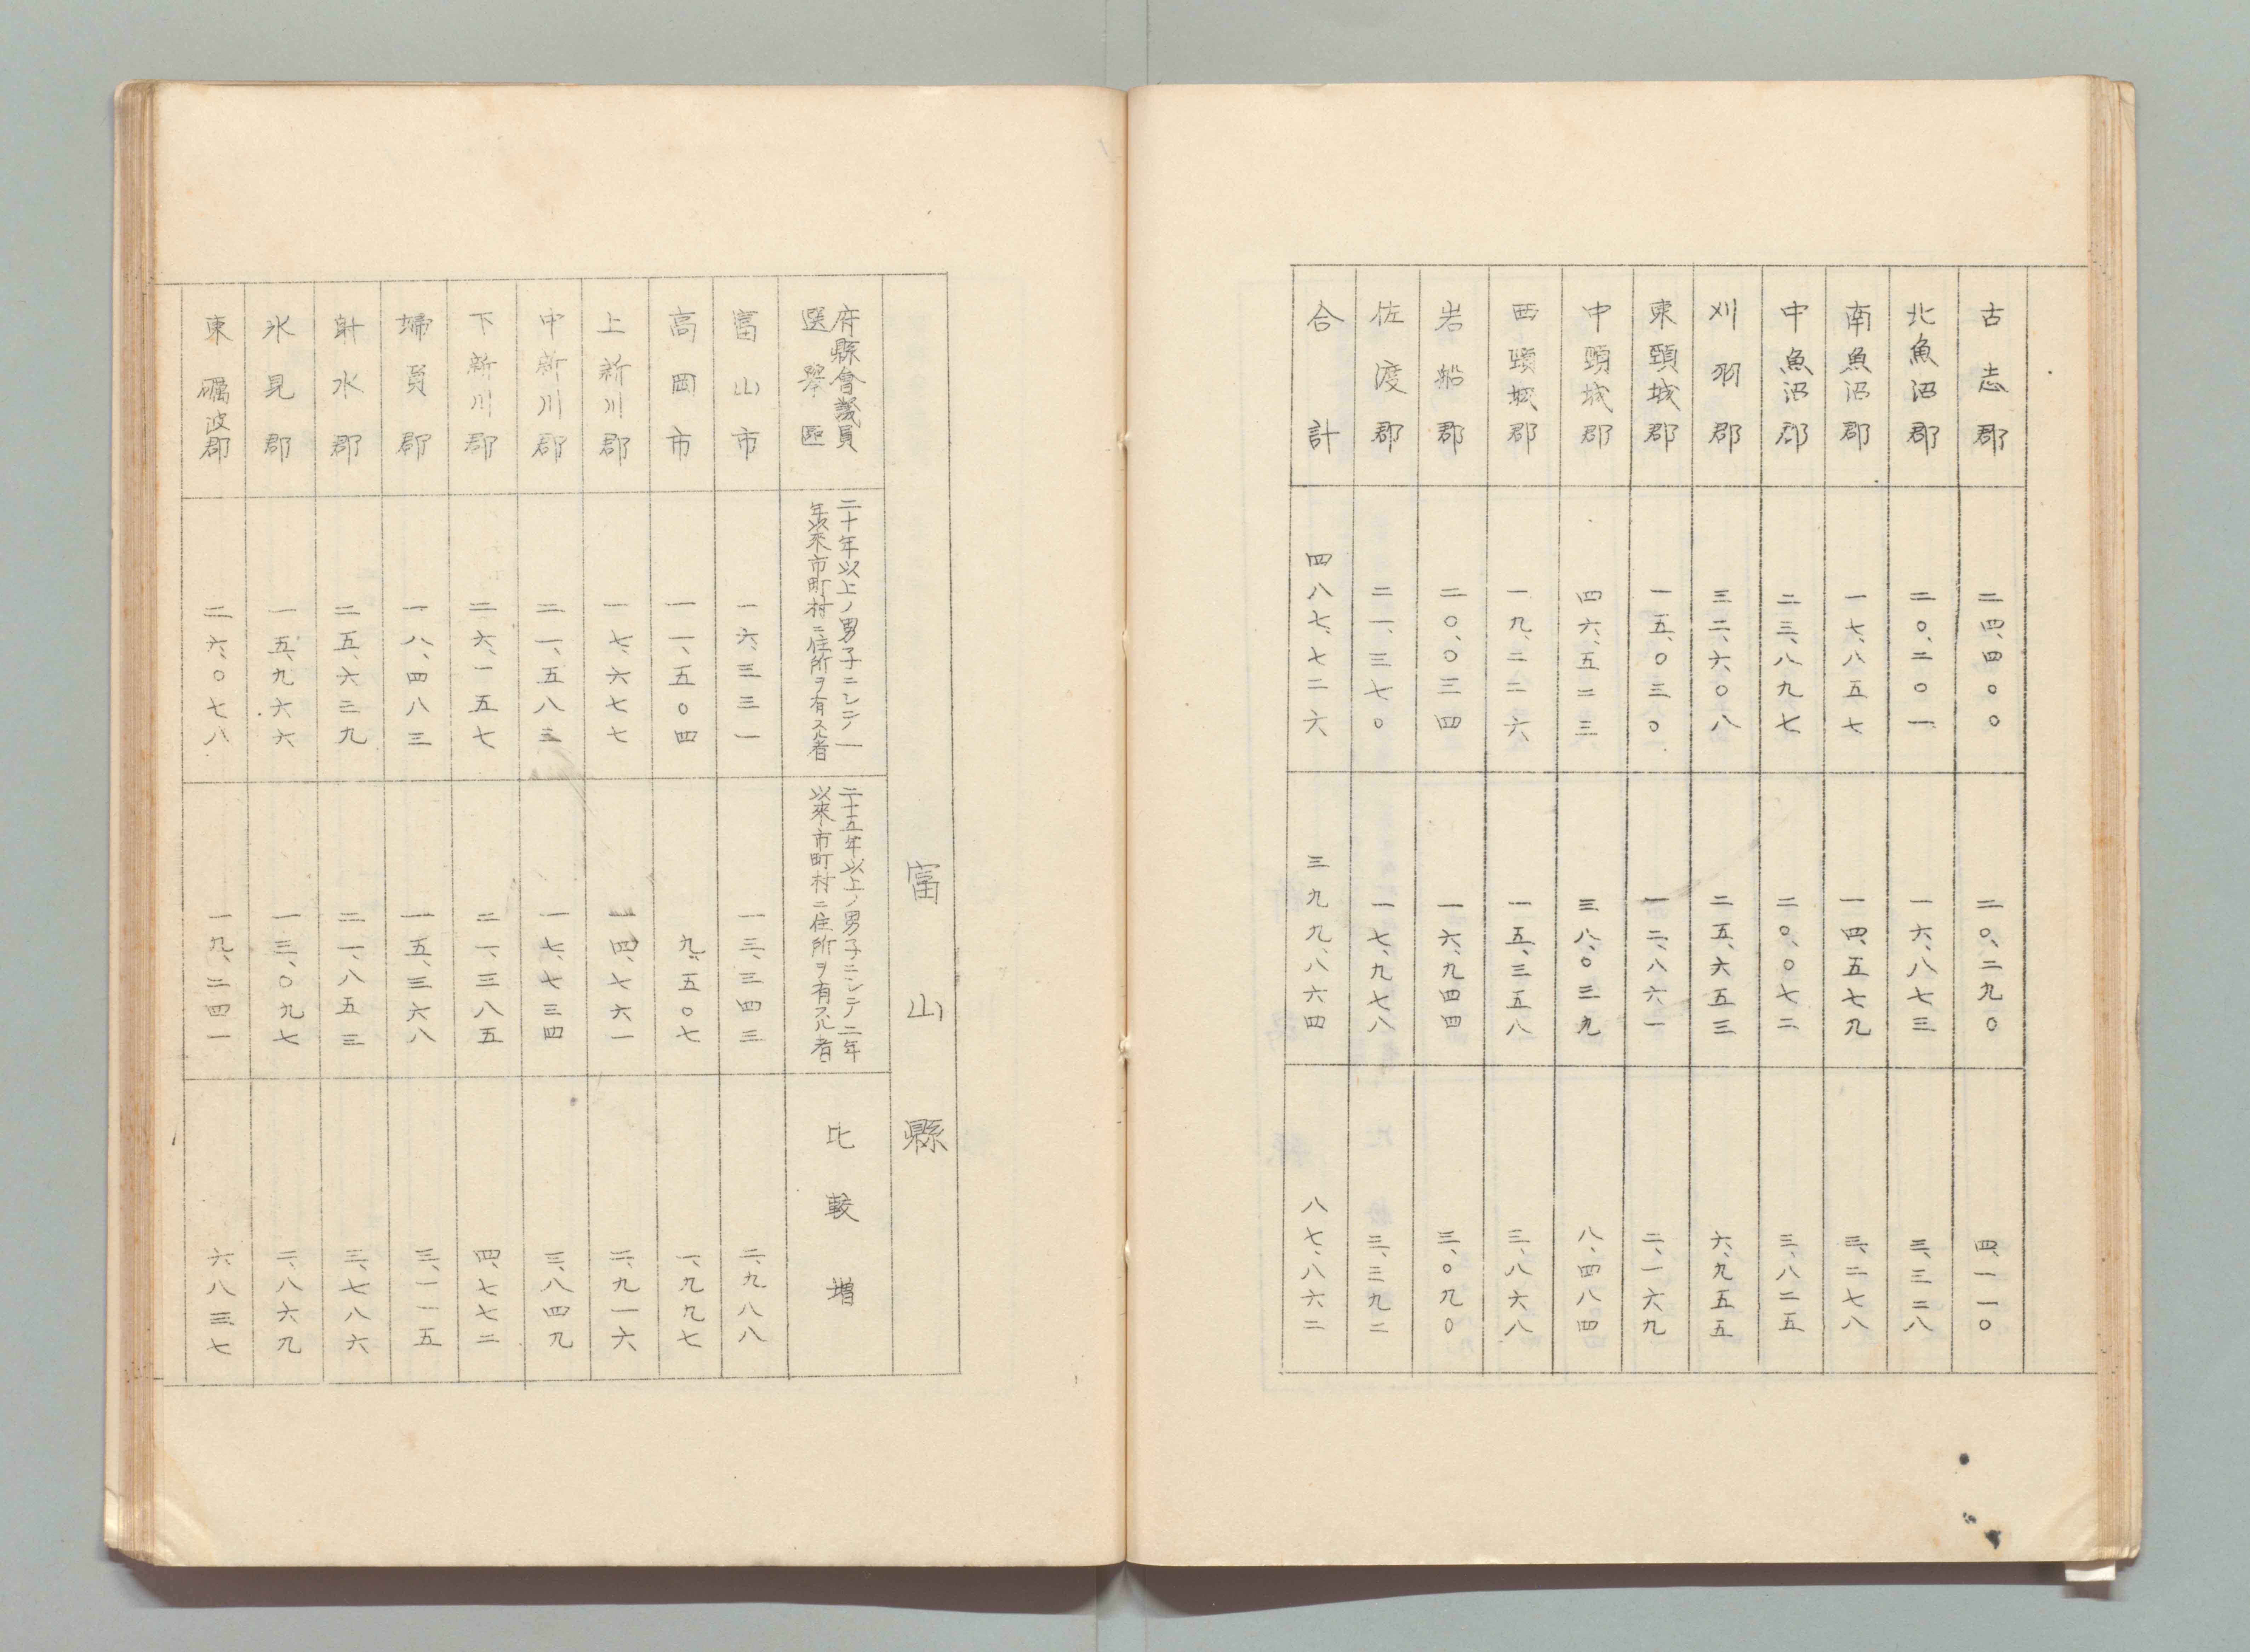 古志郡 二四、四〇〇 二〇、二九〇 四、一一〇
北魚沼郡 二〇、二〇一 一六、八七三 三、三二八
南魚沼郡 一七、八五七 一四、五七九 三、二七八
中魚沼郡 二三、八九七 二〇、〇七二 三、八二五
刈羽郡 三二、六〇八 二五、六五三 六、九五五
東頸城郡 一五、〇三〇 一二、八六一 二、一六九
中頸城郡 四六、五二三 三八、〇三九 八、四八四
西頸城郡 一九、二二六 一五、三五八 三、八六八
岩船郡 二〇、〇三四 一六、九四四 三、〇九〇
佐渡郡 二一、三七〇 一七、九七八 三、三九二
合計 四八七、七二六 三九九、八六四 八七、八六二
富山縣
府縣會議員
選擧區
二十年以上ノ男子ニシテ一
年以來市町村ニ住所ヲ有スル者
二十五年以上ノ男子ニシテ二年
以來市町村ニ住所ヲ有スル者
比較增
富山市 一六、三三一 一三、三四三 二、九八八
高岡市 一一、五〇四 九、五〇七 一、九九七
上新川郡 一七、六七七 一四、七六一 二、九一六
中新川郡 二一、五八三 一七、七三四 三、八四九
下新川郡 二六、一五七 二一、三八五 四、七七二
婦負郡 一八、四八三 一五、三六八 三、一一五
射水郡 二五、六三九 二一、八五三 三、七八六
氷見郡 一五、九六六 一三、〇九七 二、八六九
東礪波郡 二六、〇七八 一九、二四一 六八三七